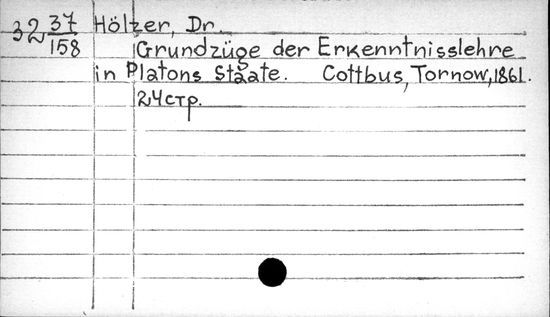 32 37/158 Hölzer, Dr.
Grundzüge der Erkenntnisslehre
in Platons Staate. Cottbus, Tornow, 1861.
24 стр.